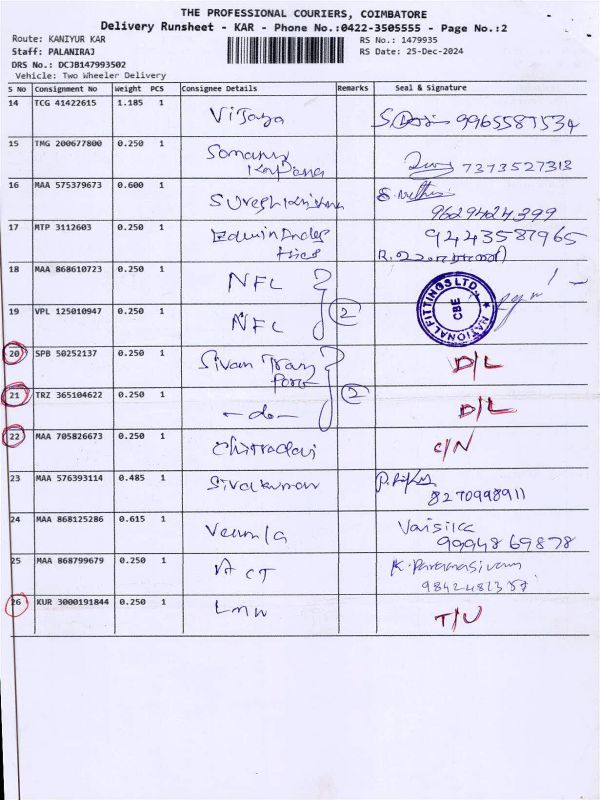 THE PROFESSIONAL COURIERS, COIMBATORE
Delivery Runsheet - KAR - Phone No.:0422-3505555 - Page No.:2
Route: KANIYUR KAR RS No.: 1479935
Staff: PALANIRAJ RS Date: 25-Dec-2024
DRS No.: DCJB147993502
Vehicle: Two Wheeler Delivery
S No Consignment No Weight PCS Consignee Details Remarks Seal & Signature
14 TCG 41422615 1.185 1 Vijaya 9965587534
15 TMG 200677800 0.250 1 7373527313
16 MAA 575379673 0.600 1 Suresh Krishna 9629424399
17 MTP 3112603 0.250 1 Edwin 9443587965
18 MAA 868610723 0.250 1 NFL
19 VPL 125010947 0.250 1 NFL 2
NATIONAL FITTINGS LTD., CBE
20 SPB 50252137 0.250 1 Sivam Trans port D/L
21 TRZ 365104622 0.250 1 -do- 2 D/L
22 MAA 705826673 0.250 1 Chitradavi C/N
23 MAA 576393114 0.485 1 Sivakumar 8270998911
24 MAA 868125286 0.615 1 99948 69878
25 MAA 868799679 0.250 1 ACT K. Paramasivam
26 KUR 3000191844 0.250 1 LMW T/U